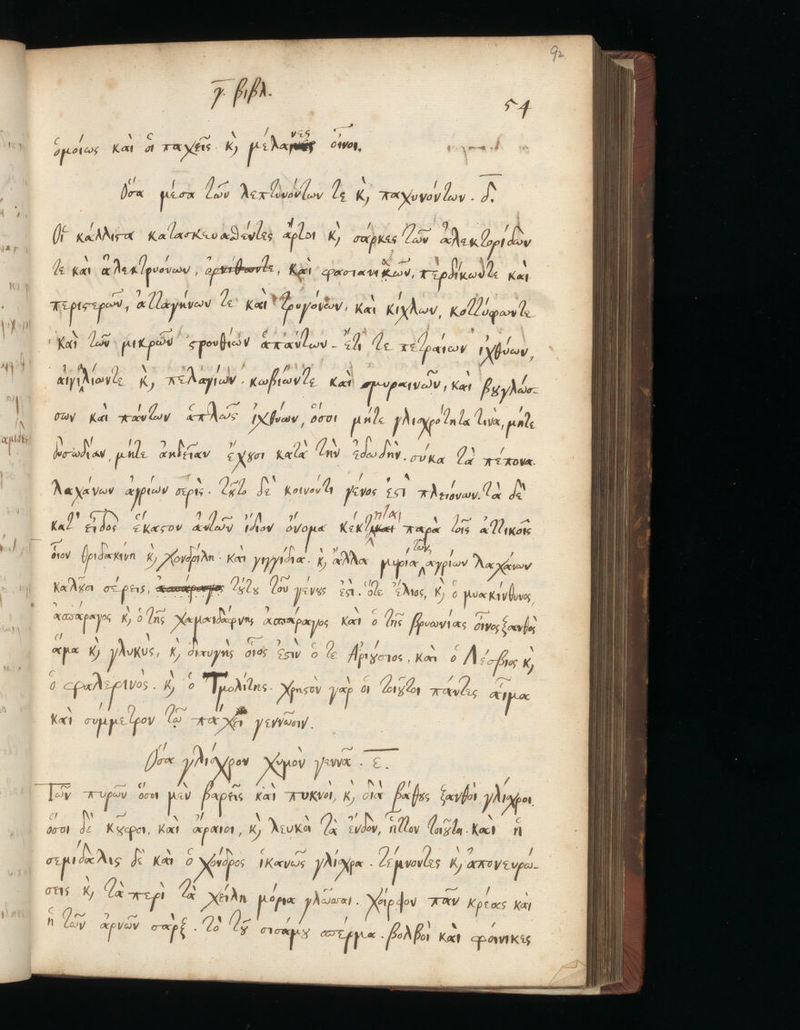 92
γ. βιβλ.
54
ὁμοίως καὶ οἱ παχεῖς κ̀ μέλανες οἶνοι.
Ὅσα μέσα τῶν λεπτυνόντων τε κ̀ παχυνόντων. δ.
Οἱ κάλλιστα κατασκευασθέντες ἄρτοι κ̀ σάρκες τῶν ἀλεκτορίδων
τε καὶ ἀλεκτρυόνων, καὶ φασιανικῶν, περδίκωντε καὶ
περιστερῶν, ἀτταγήνων τε καὶ τρυγόνων, καὶ κίχλων, κοττύφωντε
καὶ τῶν μικρῶν στρουθίων ἁπάντων. ἔτι τε πετραίων ἰχθύων,
αἰγιλίωντε κ̀ πελαγίων. κωβίωντε καὶ σμυραινῶν, καὶ βουγλώσ-
σων καὶ πάντων ἁπλῶς ἰχθύων, ὅσοι μήτε γλισχρότητα τινὰ, μήτε
δυσωδίαν, μήτε ἀηδείαν ἔχουσι κατὰ τὴν ἐδωδὴν. σύκα τὰ πέπονα.
λαχάνων ἀγρίων σερὶς. τοῦτο δὲ κοινόντι γένος ἐστὶ πλειόνων. τὰ δὲ
κατ' εἶδος ἕκαστον αὐτῶν ἴδιον ὄνομα κέκτηται παρὰ τοῖς ἀττικοῖς
οἷον θριδακίνη κ̀ χονδρίλη. καὶ γιγγίδια. κ̀ ἄλλα μυρία τῶν ἀγρίων λαχάνων
καλοῦσι σέρεις, τούτου τοῦ γένους ἐστὶ. ὅτε ἔλιος, κ̀ ὁ μυακίνθυνος,
ἀσπάραγος κ̀ ὁ τῆς χαμαιδάφνης ἀσπάραγος καὶ ὁ τῆς βρυωνίας οἶνος ξανθὸς
ἅμα κ̀ γλυκὺς, κ̀ διαυγὴς οἷος ἐστὶν ὅ τε Ἀριούσιος, καὶ ὁ Λέσβιος κ̀
ὁ φαλερινὸς. κ̀ ὁ Τμολίτης. χρηστὸν γὰρ οἱ τοιοῦτοι πάντες αἷμα
καὶ σύμμετρον τῷ πάχει γεννῶσιν.
Ὅσα γλίσχρον χυμὸν γεννᾶ. ε.
Τῶν πυρῶν ὅσοι μὲν βαρεῖς καὶ πυκνοὶ, κ̀ διὰ βάθους ξανθοὶ γλίσχροι.
ὅσοι δὲ κοῦφοι, καὶ ἄραιοι, κ̀ λευκοὶ τὰ ἔνδον, ἧττον τοιοῦτοι. καὶ ἡ
σεμίδαλις δὲ καὶ ὁ χόνδρος ἱκανῶς γλίσχρα. τέμνοντες κ̀ ἀπονευρώ-
σεις κ̀ τὰ περὶ τὰ χείλη μόρια γλῶσσαι. χοίρειον πᾶν κρέας καὶ
ἡ τῶν ἀρνῶν σάρξ. τὸ τοῦ σισάμου σπέρμα. βολβοὶ καὶ φοίνικες